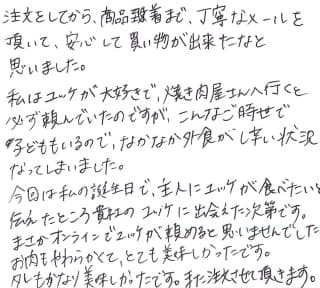 注文をしてから、商品到着まで、丁寧なメールを
頂いて、安心して買い物が出来たなと
思いました。
私はユッケが大好きで、焼き肉屋さんへ行くと
必ず頼んでいたのですが、こんなご時世で
子どももいるので、なかなか外食がし辛い状況
なってしまいました。
今回は私の誕生日で、主人にユッケが食べたいと
伝えたところ貴社のユッケに出会えた次第です。
まさかオンラインでユッケが頼めると思いませんでした
お肉もやわらかくて、とても美味しかったです。
タレもかなり美味しかったです。また注文させて頂きます。